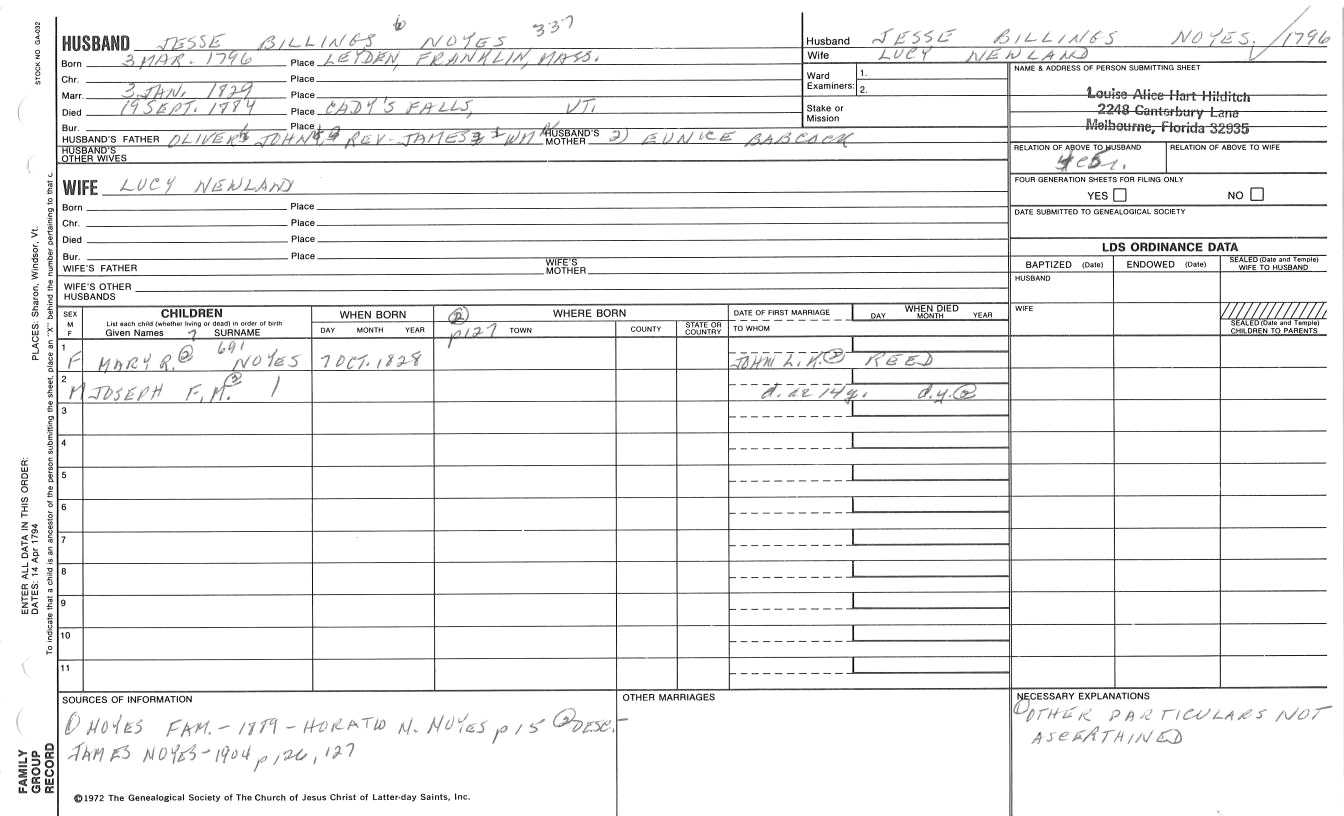 STOCK NO. GA-032
HUSBAND JESSE BILLINGS 6 NOYES 337
Born 3 MAR. 1796 Place LEYDEN, FRANKLIN, MASS.
Chr. Place
Marr. 3 JAN. 1829 Place
Died 19 SEPT. 1784 Place CADY'S FALLS, VT.
Bur. Place
HUSBAND'S FATHER OLIVER JOHN REV. JAMES WM HUSBAND'S MOTHER 2) EUNICE BABCOCK
HUSBAND'S OTHER WIVES
WIFE LUCY NEWLAND
Born Place
Chr. Place
Died Place
Bur. Place
WIFE'S FATHER WIFE'S MOTHER
WIFE'S OTHER HUSBANDS
Husband JESSE BILLINGS NOYES 1796
Wife LUCY NEWLAND
Ward Examiners: 1.
2.
Stake or Mission
NAME & ADDRESS OF PERSON SUBMITTING SHEET
Louise Alice Hart Hilditch
2248 Canterbury Lane
Melbourne, Florida 32935
RELATION OF ABOVE TO HUSBAND RELATION OF ABOVE TO WIFE
FOUR GENERATION SHEETS FOR FILING ONLY
YES NO
DATE SUBMITTED TO GENEALOGICAL SOCIETY
LDS ORDINANCE DATA
BAPTIZED (Date) ENDOWED (Date) SEALED (Date and Temple) WIFE TO HUSBAND
HUSBAND
WIFE
SEALED (Date and Temple) CHILDREN TO PARENTS
SEX M F
CHILDREN
List each child (whether living or dead) in order of birth
Given Names 7 SURNAME
WHEN BORN
DAY MONTH YEAR
WHERE BORN
② p127 TOWN COUNTY STATE OR COUNTRY
DATE OF FIRST MARRIAGE
TO WHOM
WHEN DIED
DAY MONTH YEAR
1 F MARY R. ② 691 NOYES 7 OCT. 1828 JOHN L. ② REED
2 M JOSEPH F.M. ② d. ae 14y. d.y. ②
3
4
5
6
7
8
9
10
11
SOURCES OF INFORMATION
① NOYES FAM. - 1889 - HORATIO N. NOYES p 15 ② DESC.-
JAMES NOYES - 1904 p 126, 127
OTHER MARRIAGES
NECESSARY EXPLANATIONS
① OTHER PARTICULARS NOT
ASCERTAINED
©1972 The Genealogical Society of The Church of Jesus Christ of Latter-day Saints, Inc.
FAMILY GROUP RECORD
ENTER ALL DATA IN THIS ORDER:
DATES: 14 Apr 1794
PLACES: Sharon, Windsor, Vt.
To indicate that a child is an ancestor of the person submitting the sheet, place an "X" behind the number pertaining to that c